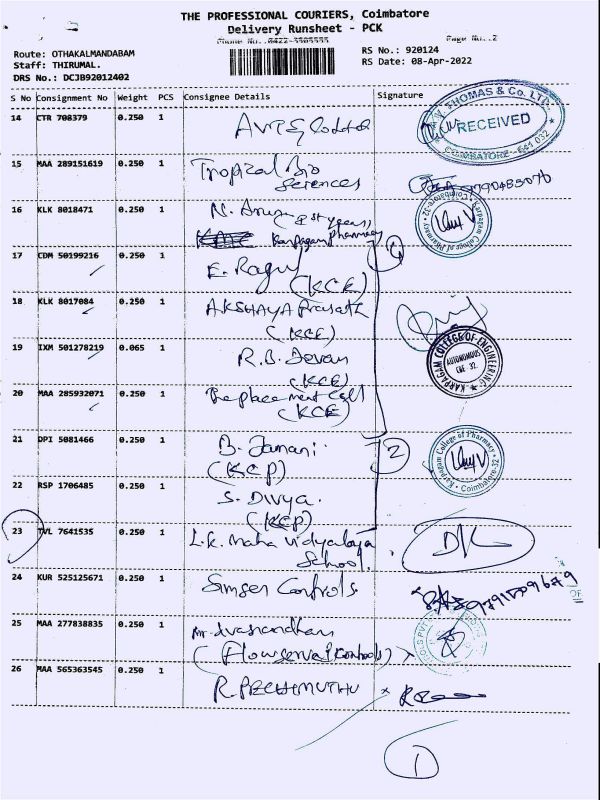 THE PROFESSIONAL COURIERS, Coimbatore
Delivery Runsheet - PCK
Phone No.:0422-3505555 Page No.:2
Route: OTHAKALMANDABAM RS No.: 920124
Staff: THIRUMAL. RS Date: 08-Apr-2022
DRS No.: DCJB92012402
S No Consignment No Weight PCS Consignee Details Signature
14 CTR 708379 0.250 1
THOMAS & Co. LTD.
RECEIVED
COIMBATORE - 641 032
15 MAA 289151619 0.250 1 Tropical Bio
Sciences
16 KLK 8018471 0.250 1 N. 1st year,
Karpagam Pharmacy
Karpagam College of Pharmacy Coimbatore-32
17 CDM 50199216 0.250 1 E. Ragu
(KCE)
1
18 KLK 8017084 0.250 1 AKSHAYA Prasath
(KCE)
19 IXM 501278219 0.065 1 R.B. Devan
(KCE)
KARPAGAM COLLEGE OF ENGINEERING
AUTONOMOUS
CBE 32.
20 MAA 285932071 0.250 1 The placement Cell
(KCE)
21 DPI 5081466 0.250 1 B. Jamani.
(KCP)
2
Karpagam College of Pharmacy Coimbatore-32
22 RSP 1706485 0.250 1 S. Divya.
(KCP)
23 TVL 7641535 0.250 1 L.K. Maha Vidyalaya
School.
24 KUR 525125671 0.250 1 Simser Controls
25 MAA 277838835 0.250 1
(Flowserve Controls)
26 MAA 565363545 0.250 1 R. PECHIMUTHU
1